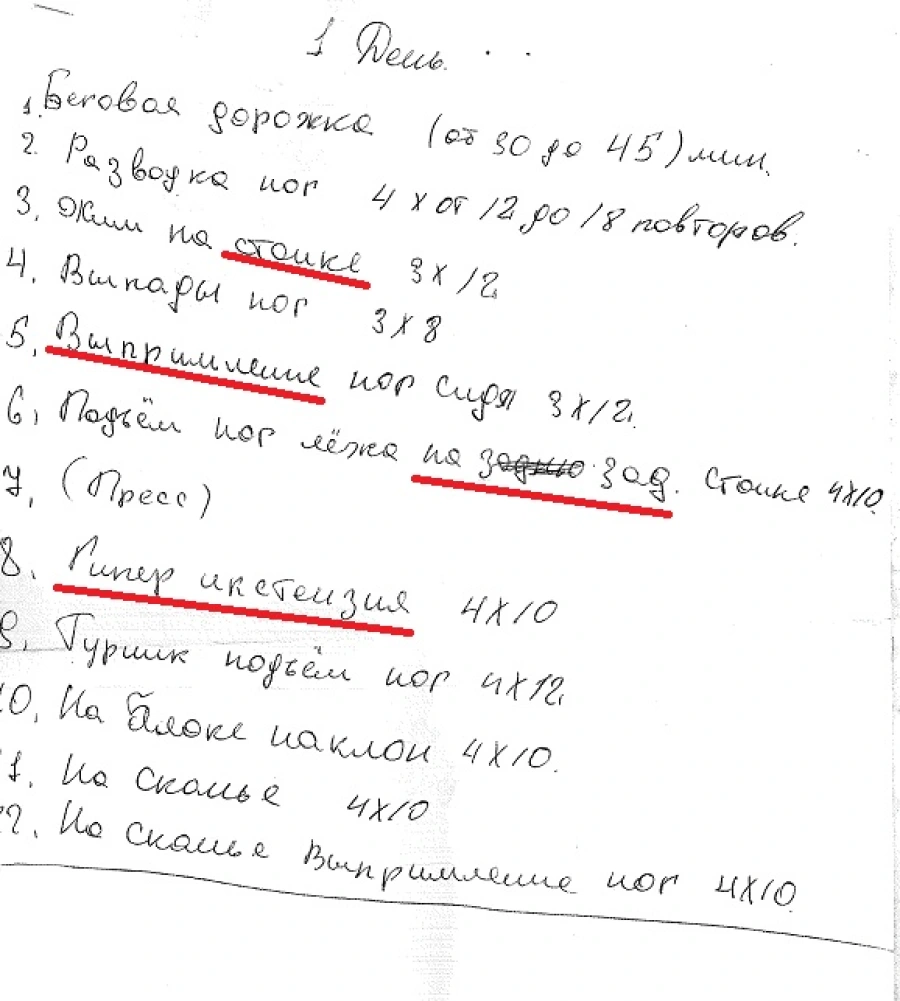 1 День.
1. Беговая дорожка (от 30 до 45) мин.
2. Разводка ног 4 х от 12 до 18 повторов.
3. Жим на стоике 3 х 12
4. Выпады ног 3 х 8
5. Выпримление ног сидя 3 х 12.
6. Подъём ног лёжа на зад. Стоике 4х10.
7. (Пресс)
8. Гипер икстензия 4х10
9. Турник подъём ног 4х12.
10. На блоке наклон 4х10.
11. На скамье 4х10
12. На скамье Выпримление ног 4х10.